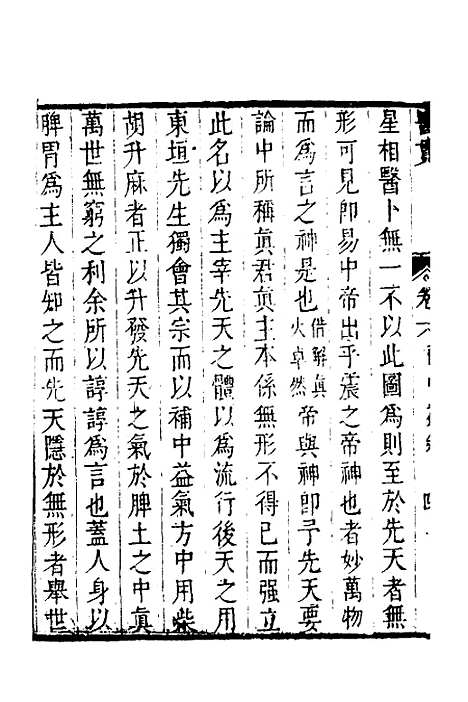 醫貫
卷六
四
星相醫卜無一不以此圖爲則至於先天者無
形可見即易中帝出乎震之帝神也者妙萬物
而爲言之神是也借解真火卓然帝與神即予先天要
論中所稱真君真主本係無形不得已而强立
此名以爲主宰先天之體以爲流行後天之用
東垣先生獨會其宗而以補中益氣方中用柴
胡升麻者正以升發先天之氣於脾土之中真
萬世無窮之利余所以諄諄爲言也蓋人身以
脾胃爲主人皆知之而先天隱於無形者舉世